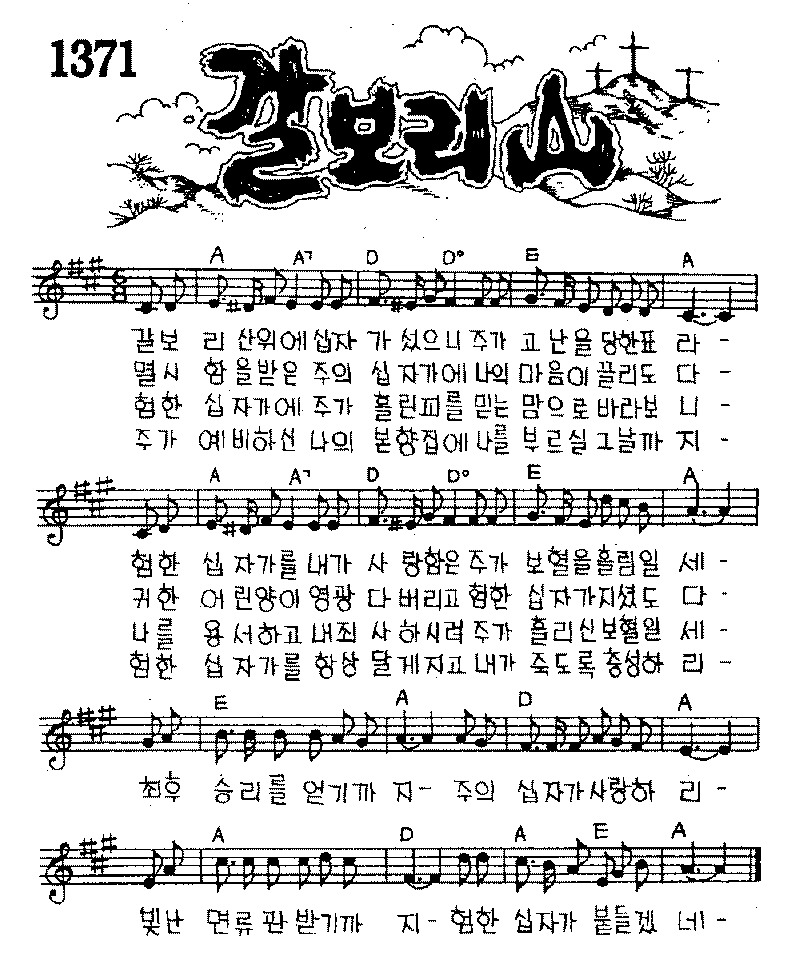 1371
갈보리 산
A A7 D D° E A
갈보 리 산위에십자 가 섰으니 주가 고 난을 당한표 라 -
멸시 함을받은 주의 십자가에 나의 마음이 끌리도 다 -
험한 십자가에 주가 흘린피를 믿는 맘으로 바라보 니 -
주가 예비하신 나의 본향집에 나를 부르실 그날까 지 -
A A7 D D° E A
험한 십자가를 내가 사 랑함은 주가 보혈을흘림일 세 -
귀한 어린양이 영광 다 버리고 험한 십자가지셨도 다 -
나를 용서하고 내죄 사 하시려 주가 흘리신보혈일 세 -
험한 십자가를 항상 달게지고 내가 죽도록충성하 리 -
E A D A
최후 승리를 얻기까 지 - 주의 십자가사랑하 리 -
A D A E A
빛난 면류관 받기까 지 - 험한 십자가 붙들겠 네 -